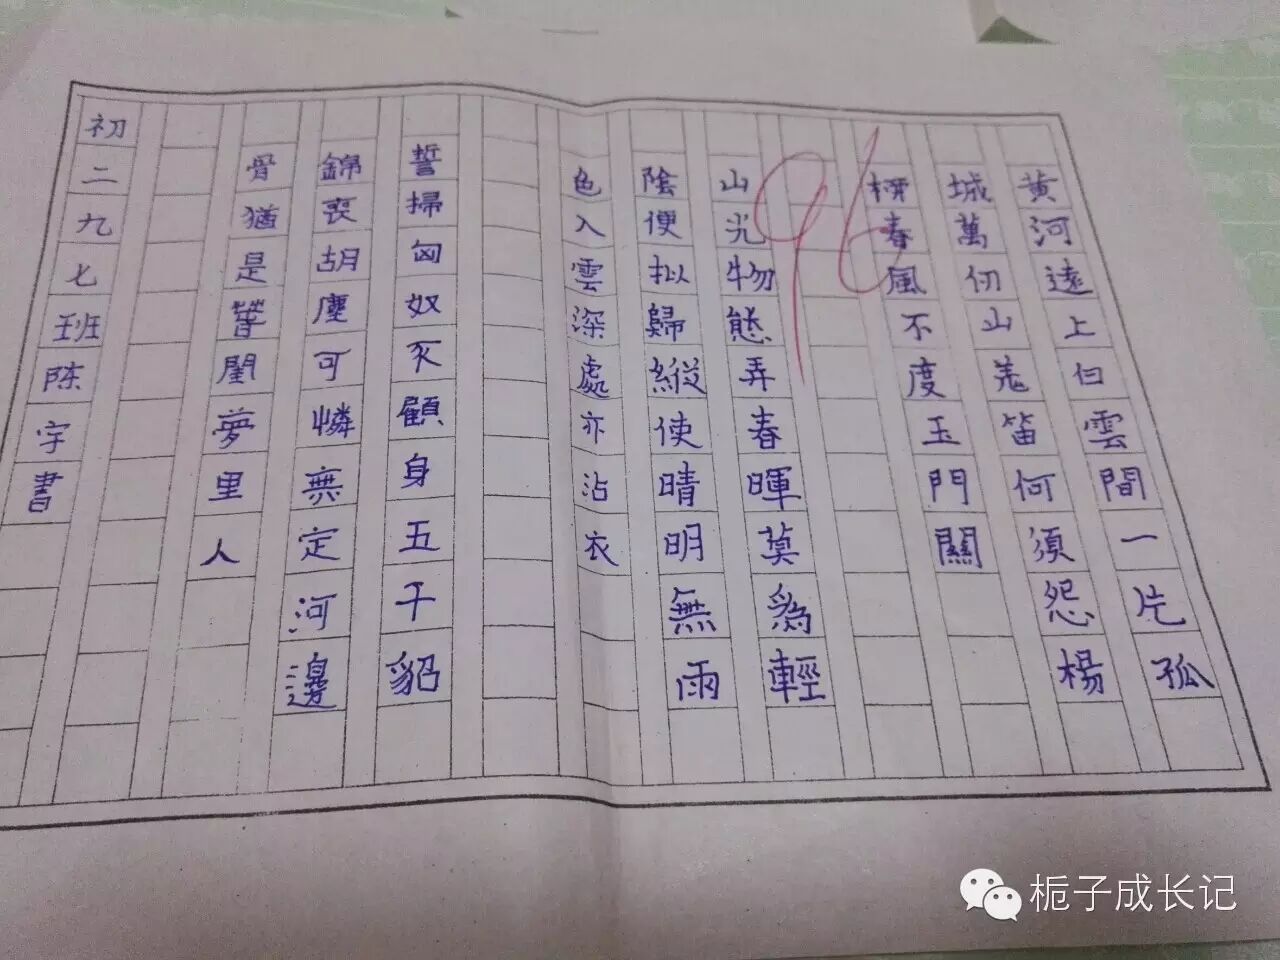 黃河遠上白雲間一片孤
城萬仞山羌笛何須怨楊
栁春風不度玉門關
96
山光物態弄春暉莫爲輕
陰便拟歸縱使晴明無雨
色入雲深處亦沾衣
誓掃匈奴不顧身五千貂
錦喪胡塵可憐無定河邊
骨猶是春閨夢里人
初二九七班陈宇書
栀子成长记